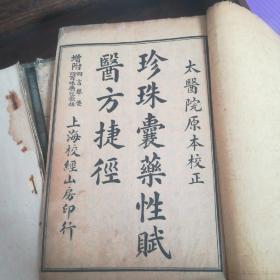 太醫院原本校正
珍珠囊藥性賦
醫方捷徑
增附
上海校經山房印行